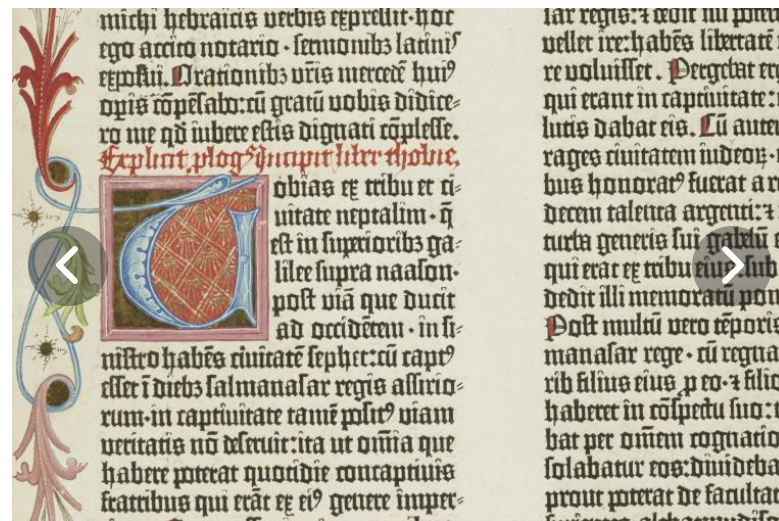 michi hebraicis verbis expressit·hoc
ego accito notario·sermonibꝫ latinis
exposui. Orationibꝫ vr̄is mercedē huiꝰ
opis cōpēsabo:cū gratū vobis didice=
ro me qd̄ iubere estis dignati cōplesse.
Explicit plogꝰ Incipit liber thobie.
Tobias ex tribu et ci=
uitate neptalim·q̄
est in superioribꝫ ga=
lilee supra naason·
post viā que ducit
ad occidētem·in si=
nistro habēs ciuitatē sephet:cū captꝰ
esset ī diebꝫ salmanasar regis assirio=
rum·in captiuitate tamē positꝰ viam
veritatis nō deseruit:ita ut omīa que
habere poterat quotidie concaptiuis
fratribus qui erāt ex eiꝰ genere imper=
iar regis:⁊ dedit illi
vellet ire:habēs libertatē
re voluisset. Pergebat
qui erant in captiuitate:
lutis dabat eis. Cū
rages ciuitatem iudeoꝝ·
bus honoratꝰ fuerat a
decem talenta argenti:⁊
turba generis sui gabelū
qui erat ex tribu eius sub
dedit illi memoratū
Post multū vero tēporis
manasar rege·cū
rib filius eius p eo·⁊
haberet in cōspectu suo:
bat per omēm
solabatur eos:
prout poterat de